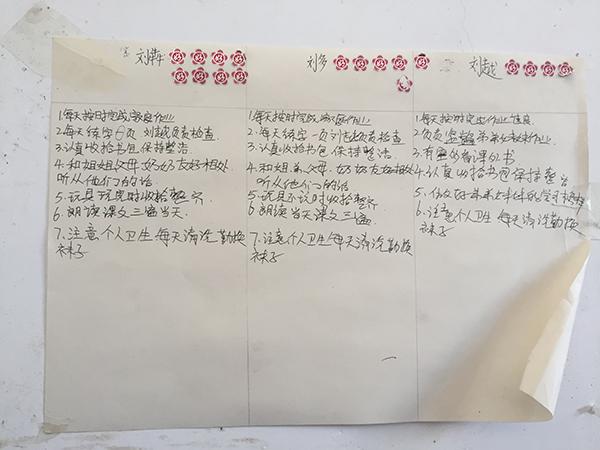 刘犇
1.每天按时完成家庭作业
2.每天练字一页 刘越负责检查
3.认真收拾书包 保持整洁
4.和姐姐父母.奶奶友好相处
听从他们的话
5.玩具玩完时收拾整齐
6.朗读课文三遍当天
7.注意个人卫生 每天清洗勤换
袜子
刘多
1.每天按时完成家庭作业
2.每天练字一页刘越负责检查
3.认真收拾书包 保持整洁
4.和姐.弟.父母.奶奶友好相处
听从他们的话
5.玩具不玩时收拾整齐
6.朗读当天课文三遍
7.注意个人卫生 每天清洗勤换
袜子
刘越
1.每天按时完成作业
2.负责 弟弟 作业
3.有 书
4.认真收拾书包 保持整洁
5.
6.注意个人卫生 每天清洗勤换
袜子